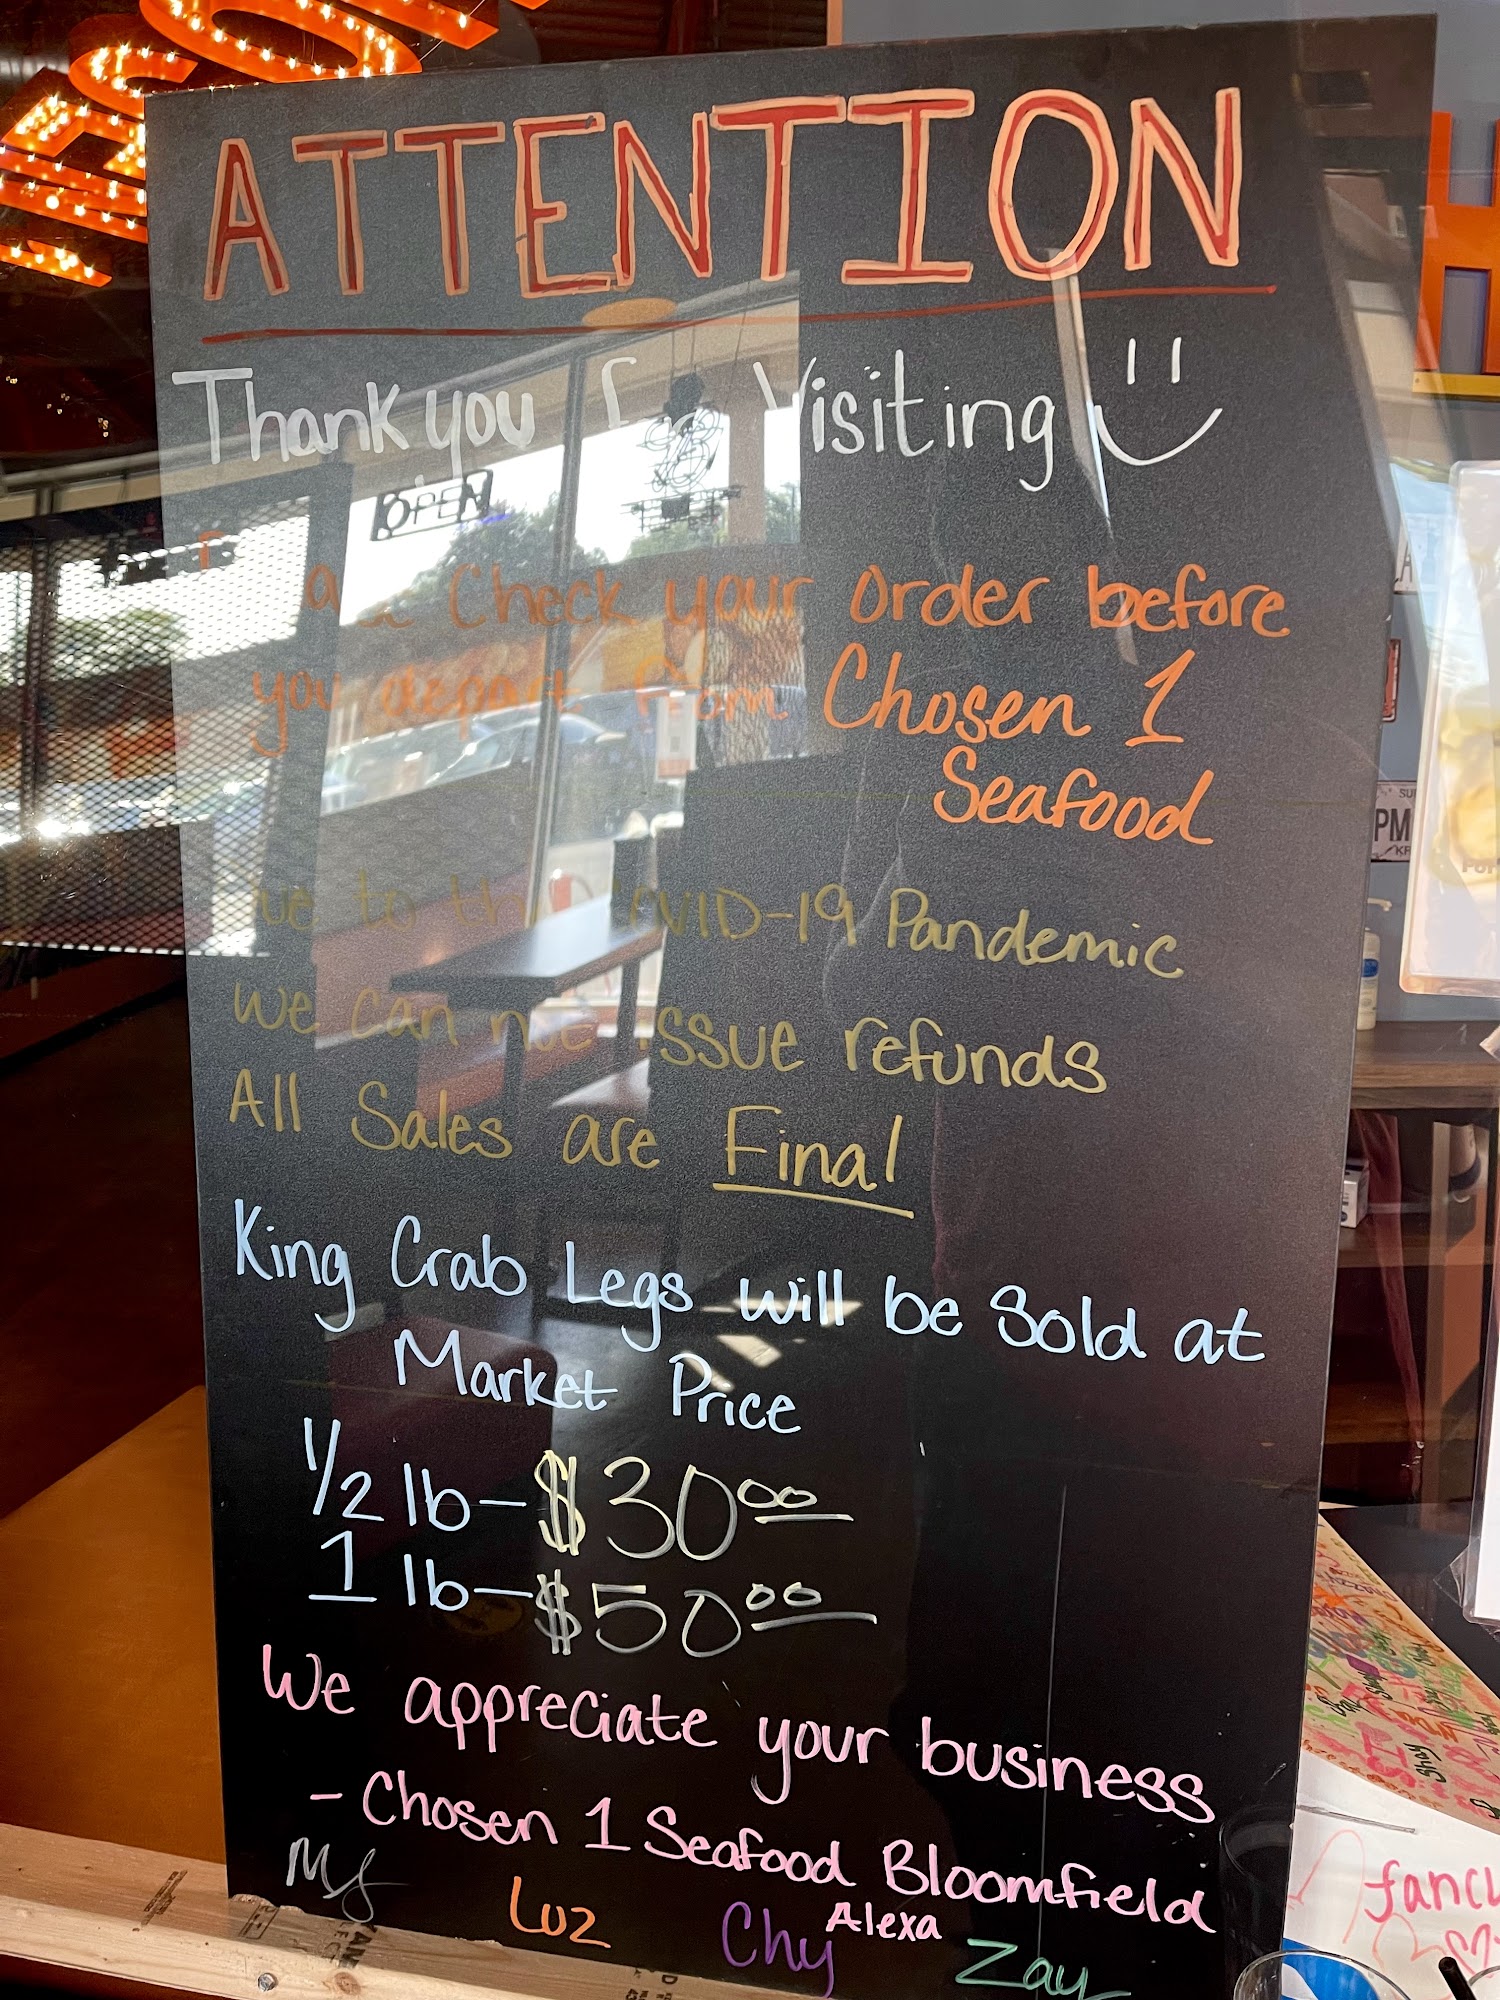 ATTENTION
Thank you for Visiting
OPEN
Check your order before
you depart from Chosen 1
Seafood
to the COVID-19 Pandemic
We can not issue refunds
All Sales are Final
King Crab Legs will be Sold at
Market Price
1/2 lb - $30.00
1 lb - $50.00
We appreciate your business
- Chosen 1 Seafood Bloomfield
Luz Chy Alexa Zay
PM